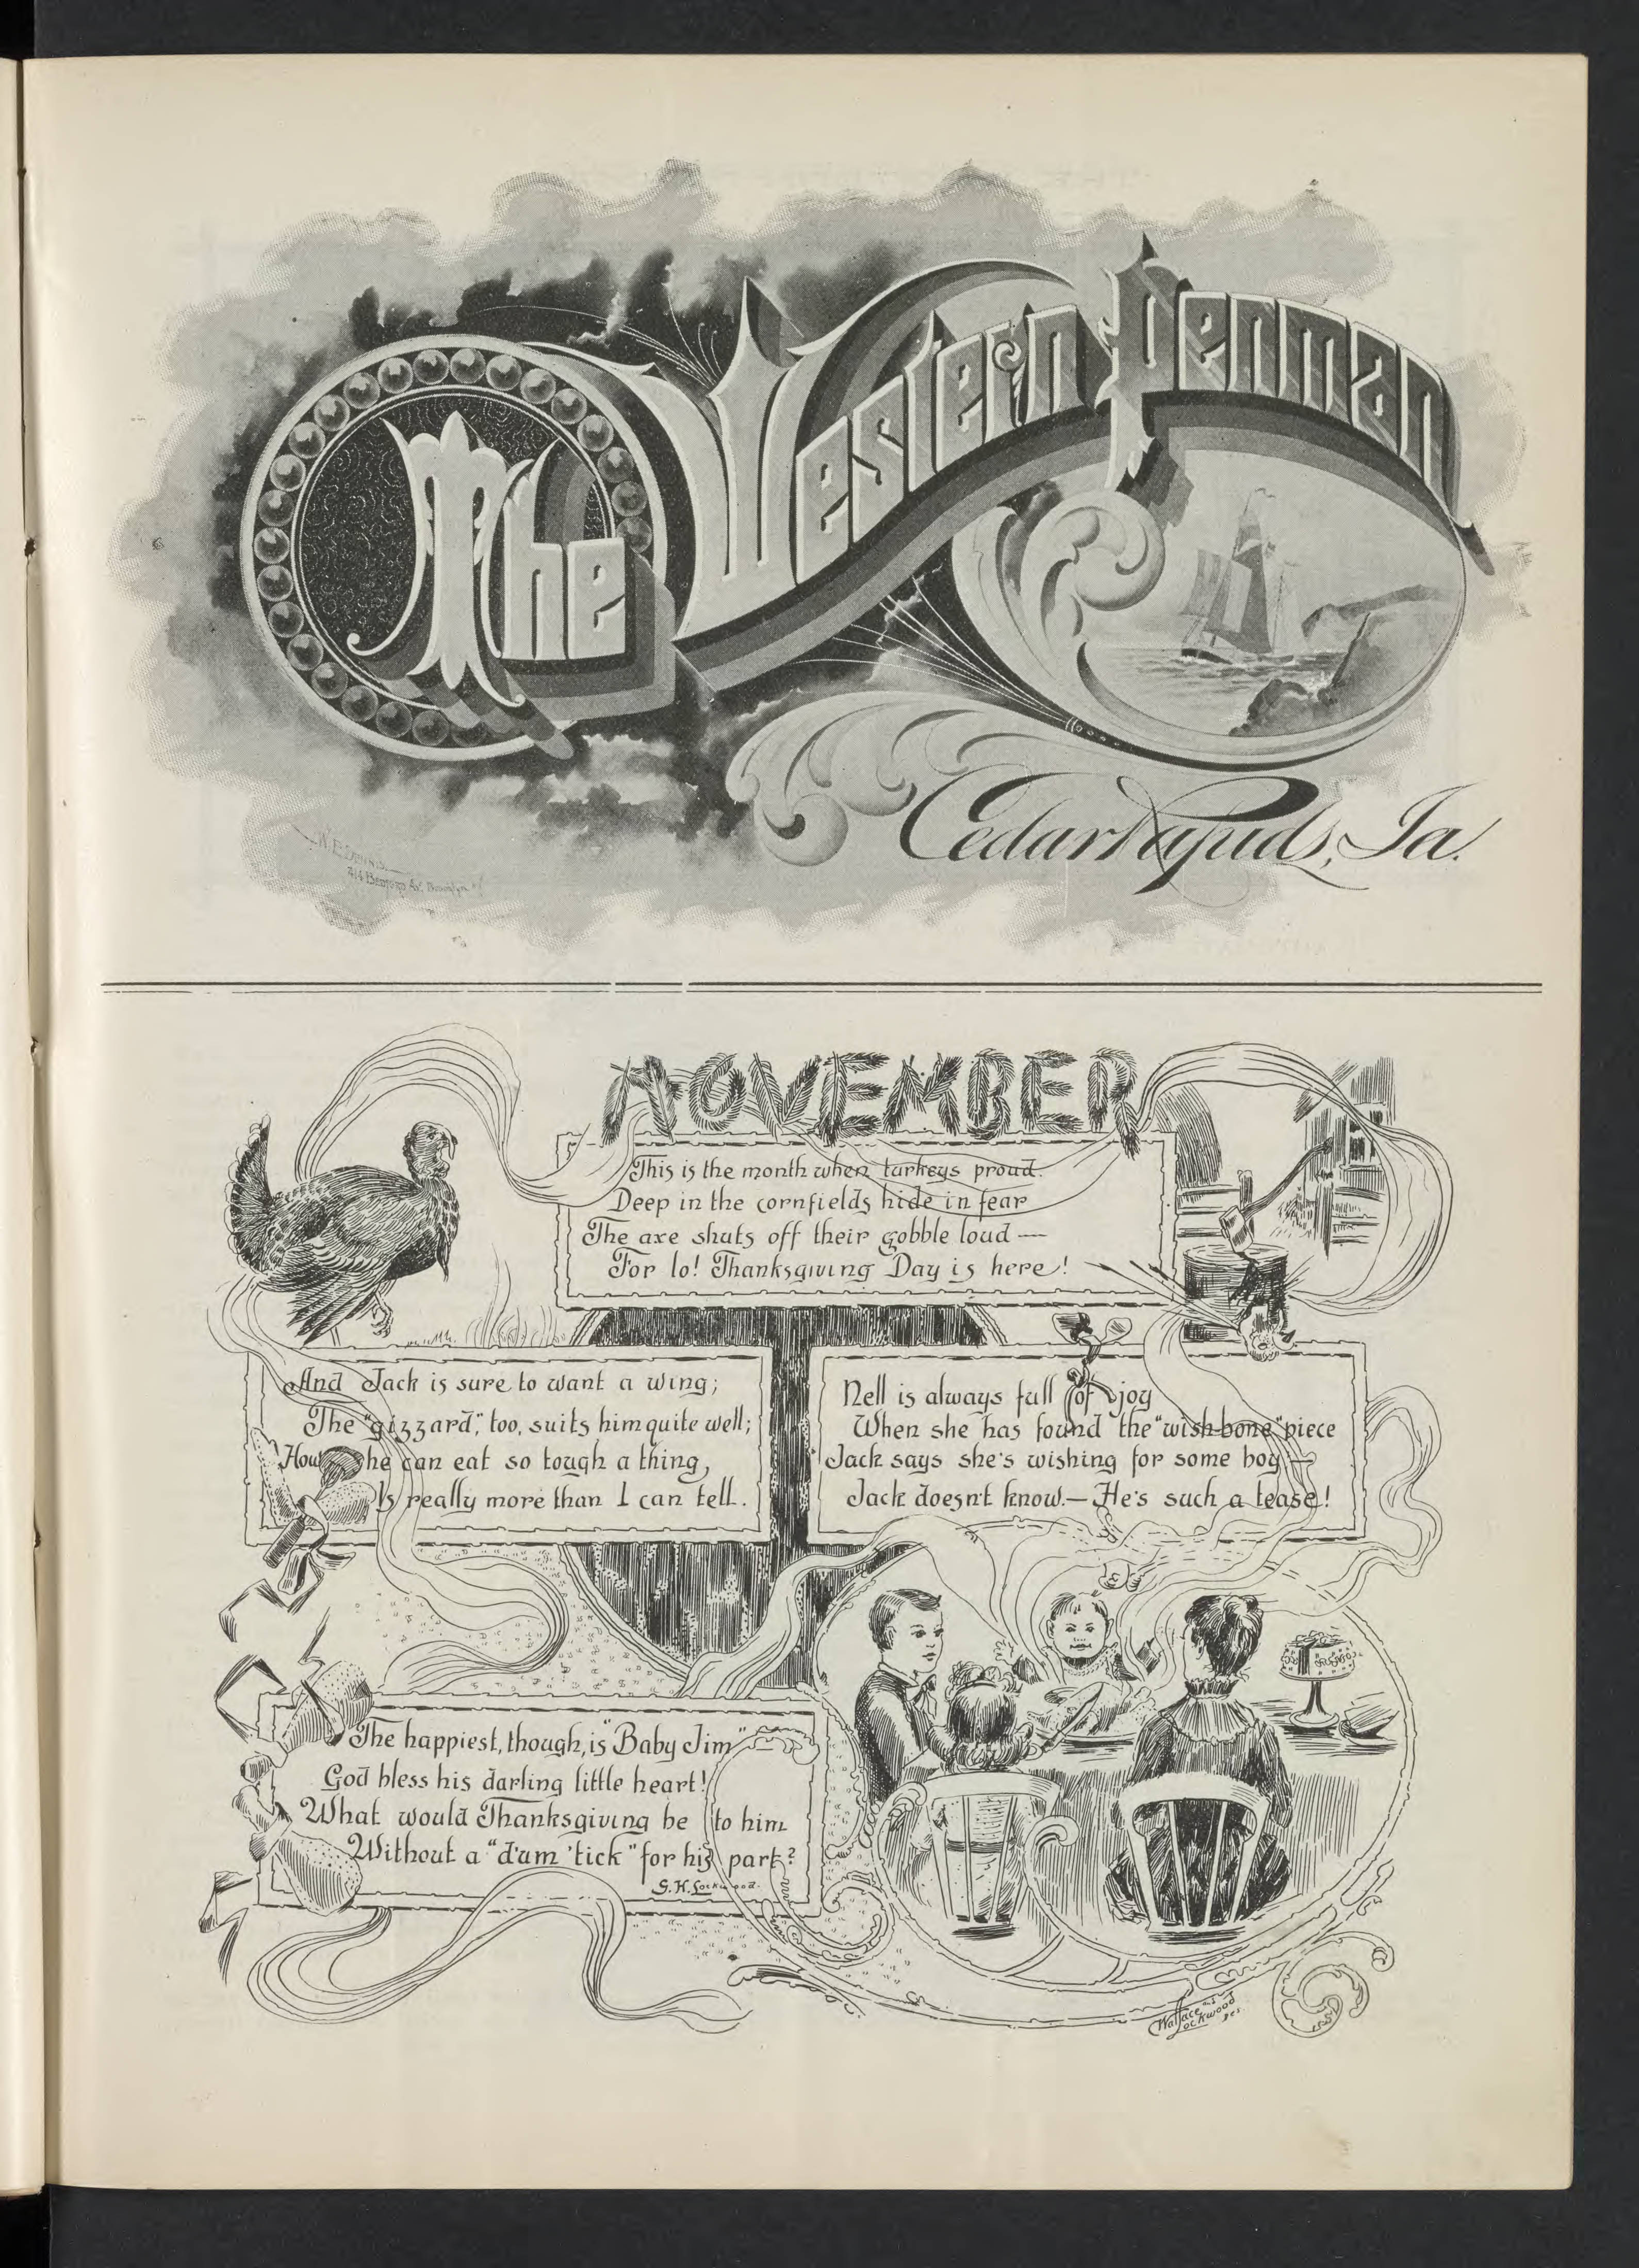 The Western Penman
Cedar Rapids, Ia.
414 Bedford Av. Brooklyn
NOVEMBER
This is the month when turkeys proud
Deep in the cornfields hide in fear
The axe shuts off their gobble loud —
For lo! Thanksgiving Day is here!
And Jack is sure to want a wing;
The "gizzard," too, suits him quite well;
How he can eat so tough a thing,
Is really more than I can tell.
Nell is always full of joy
When she has found the "wish-bone" piece
Jack says she's wishing for some boy —
Jack doesn't know. — He's such a tease!
The happiest, though, is "Baby Jim"
God bless his darling little heart!
What would Thanksgiving be to him
Without a "d'um 'tick" for his part?
S. H. Lockwood.
Wallace and
Lockwood
des.